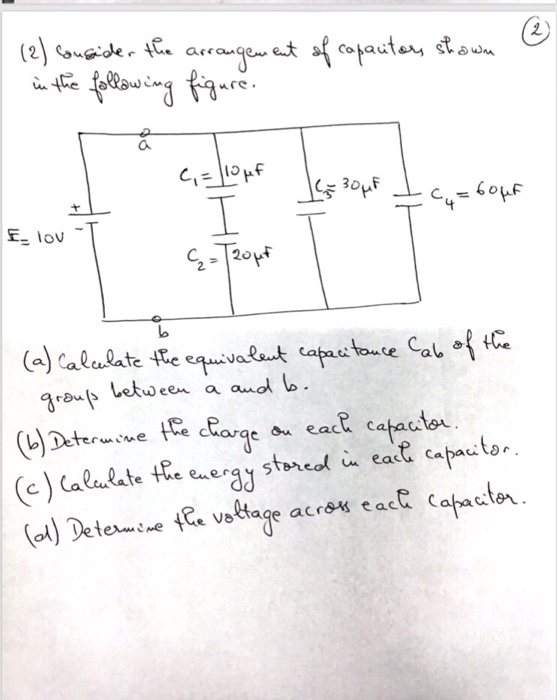 (2)
(2) Consider the arrangement of capacitors shown
in the following figure.
a
C₁ = 10 μF
C₃ = 30 μF
C₄ = 60 μF
+
E = 10V
-
C₂ = 20 μF
b
(a) Calculate the equivalent capacitance Cab of the
group between a and b.
(b) Determine the charge on each capacitor.
(c) Calculate the energy stored in each capacitor.
(d) Determine the voltage across each capacitor.